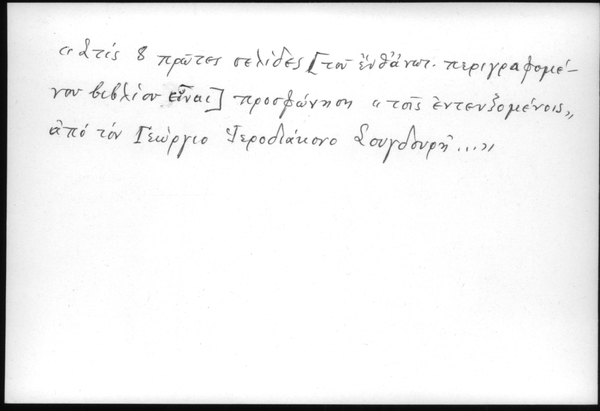 «Στίς 8 πρῶτες σελίδες [τοῦ ἐνθάνωτ. περιγραφομέ-
νου βιβλίου εἶναι] προσφώνηση «τοῖς ἐντευξομένοις»,
ἀπό τόν Γεώργιο Ἱεροδιάκονο Σουγδουρῆ...»